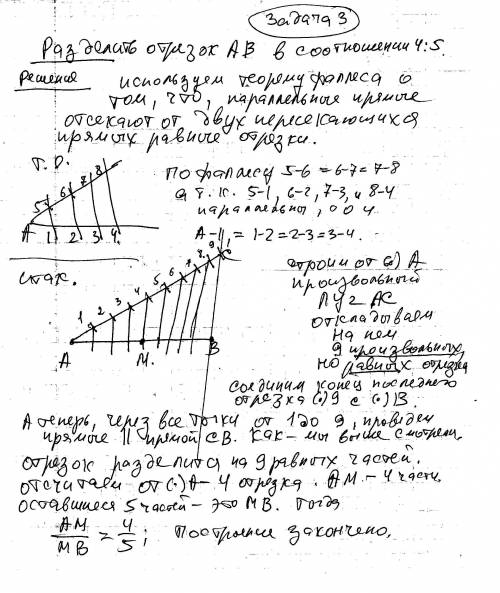 Задача 3
Разделить отрезок AB в соотношении 4:5.
Решение
используем теорему фаллеса о
том, что, параллельные прямые
отсекают от двух пересекающихся
прямых равные отрезки.
Т. О.
5 6 7 8
A 1 2 3 4
По фаллесу 5-6 = 6-7 = 7-8
а т. к. 5-1, 6-2, 7-3, и 8-4
параллельны,
A-1, = 1-2 = 2-3 = 3-4.
итак.
1 2 3 4 5 6 7 8 9 C
A M. B
строим от (.) A
произвольный
луч AC
откладываем
на нем
9 произвольных,
но равных отрезка
соединим конец последнего
отрезка (.) 9 с (.) B.
А теперь, через все точки от 1 до 9, проведем
прямые || прямой CB. Как мы выше смотрели,
отрезок разделится на 9 равных частей.
отсчитаем от (.) A - 4 отрезка. AM - 4 части.
оставшиеся 5 частей - это MB. Тогда
AM/MB = 4/5; Построение закончено.